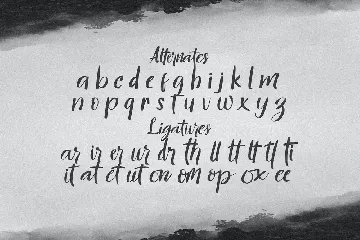 Alternates
a b c d e f g h i j k l m
n o p q r s t u v w x y z
Ligatures
ar ir er ur dr th ll tt lt tl ti
it at et ut on om op ox ee